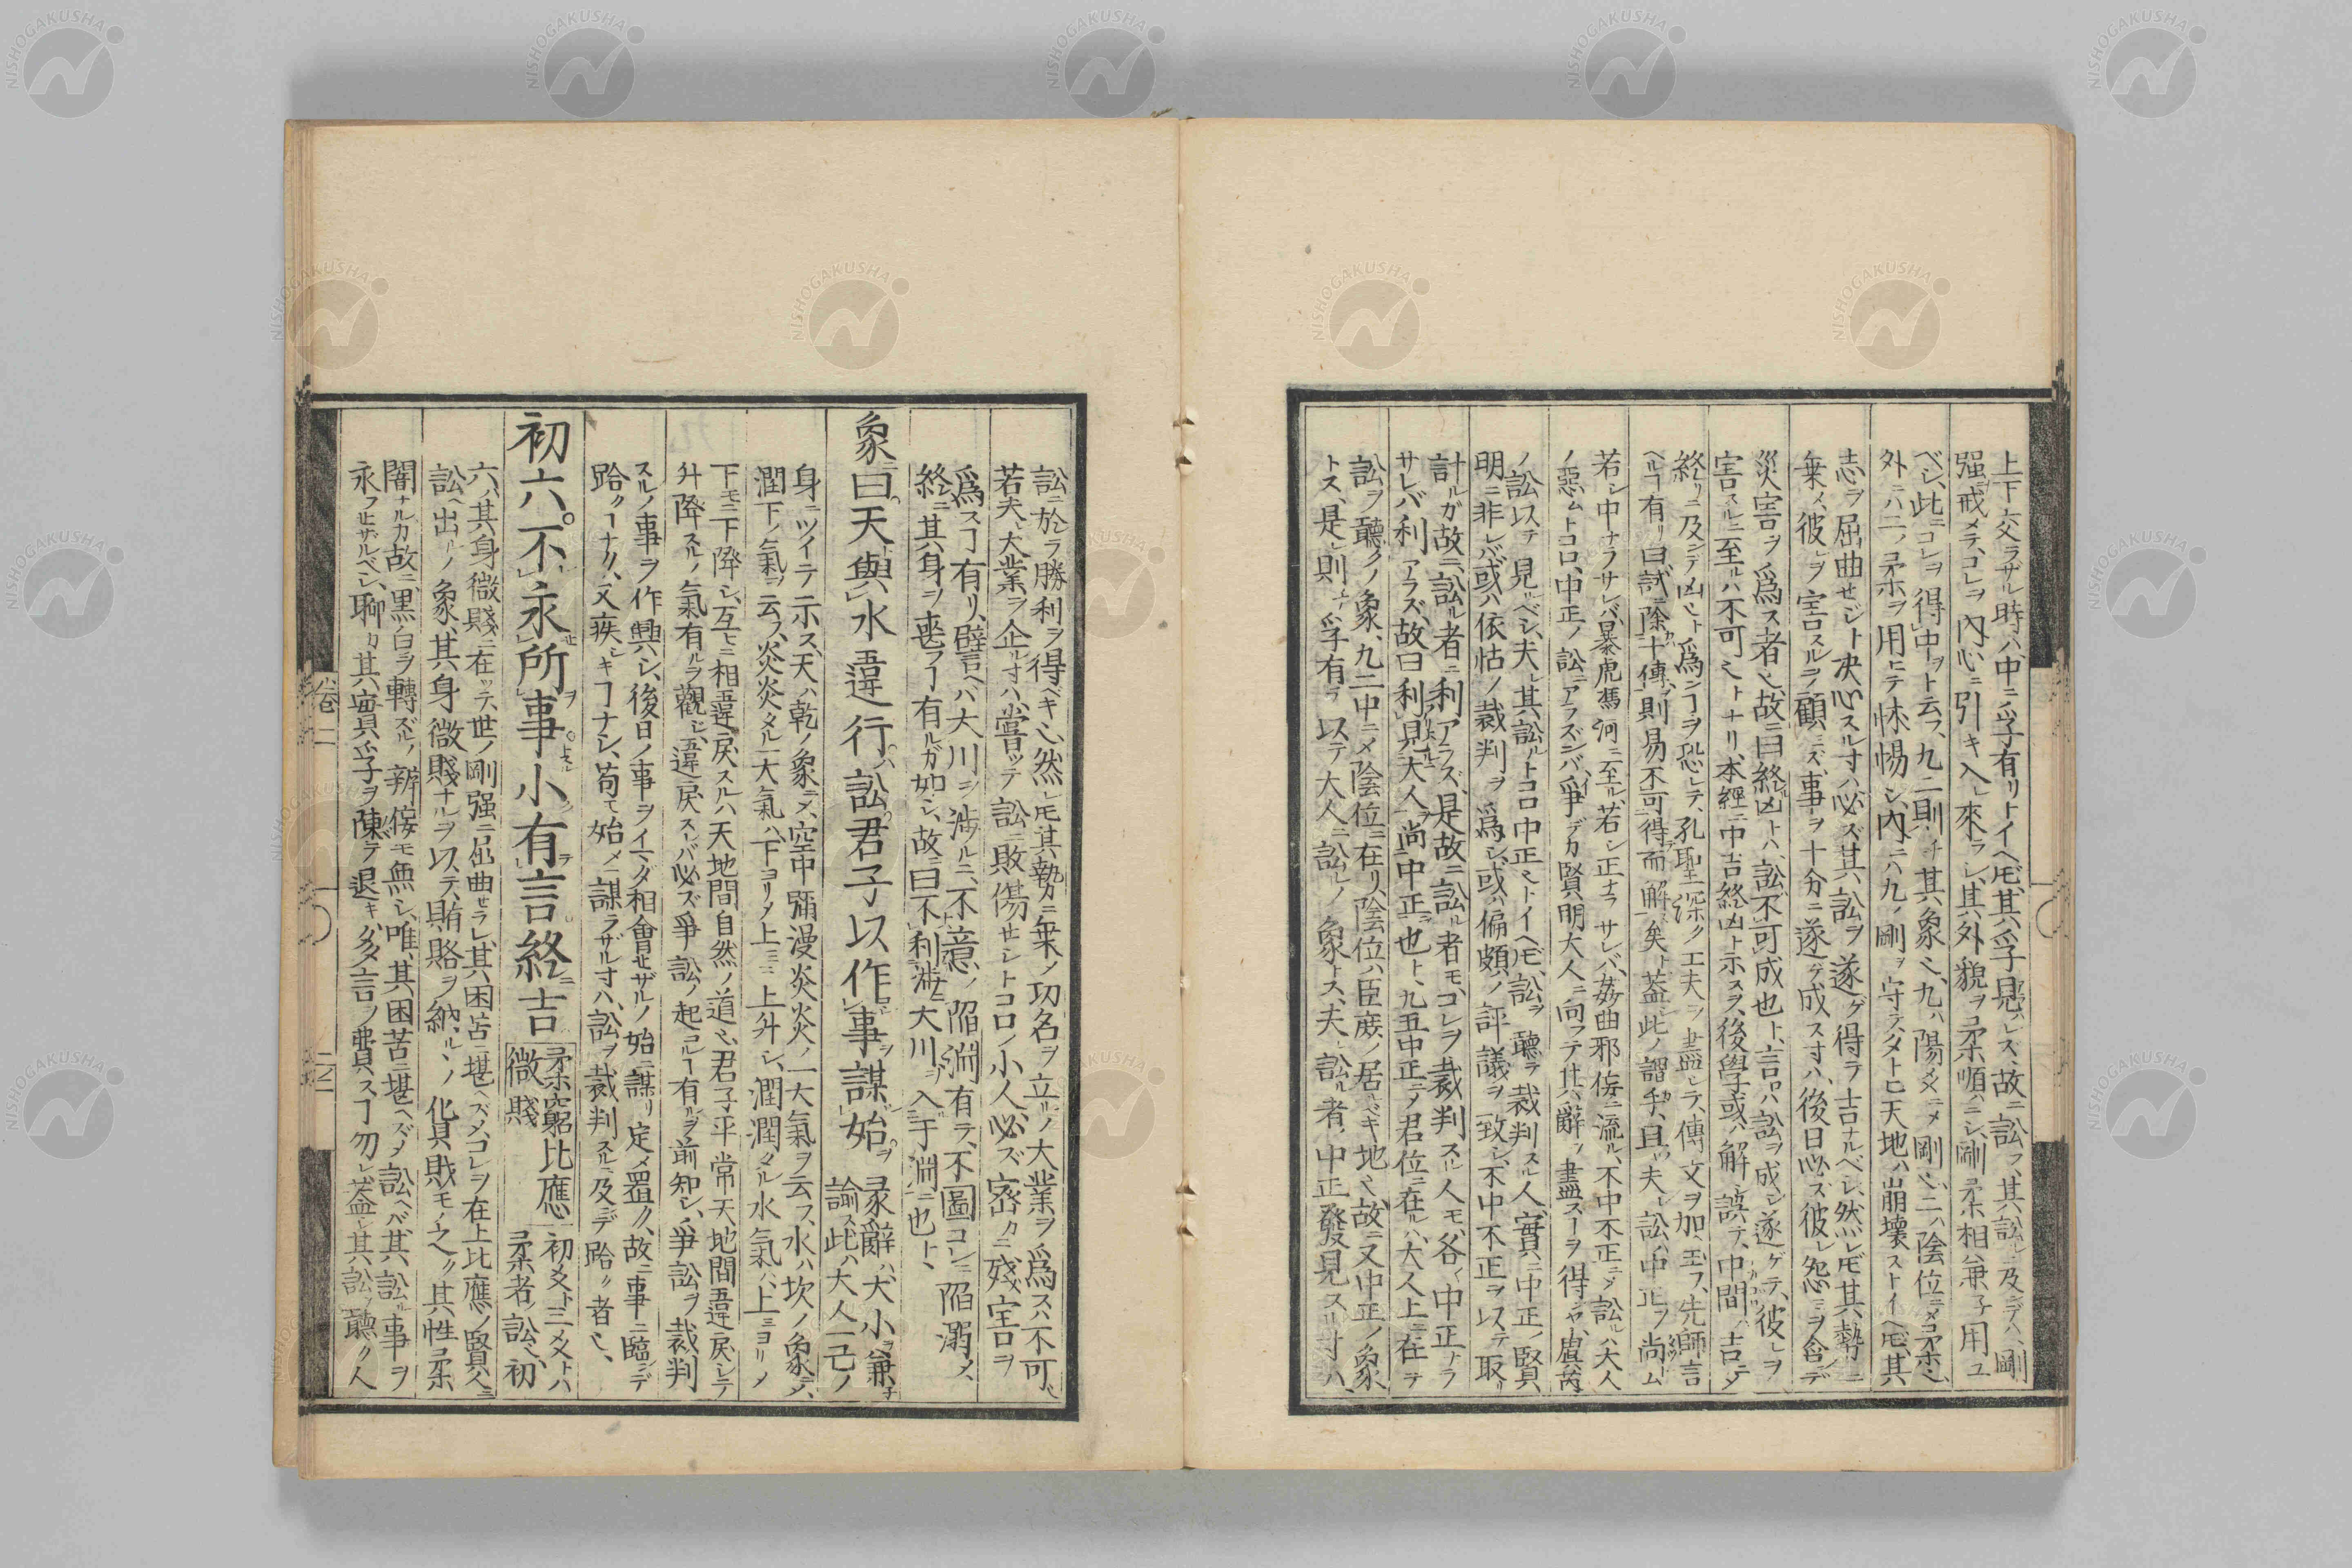 上下交ラザル時ハ中ニ孚有リトイヘ𪜈其孚見ハレス故ニ訟フ其訟ルニ及デハ剛
强ヲ戒メテコレヲ內心ニ引キ入レ來ラシ其外貌ヲ柔順ニシ剛柔相兼子用ユ
ベシ此ニコレヲ得中ヲト云フ九二則チ其象也九ハ陽爻ニメ剛也二ハ陰位ニメ柔也
外ニハ二ノ柔ヲ用ヒテ怵惕シ內ニハ九ノ剛ヲ守テタトヒ天地ハ崩壞ストイヘ𪜈其
志ヲ屈曲せジト决心スル寸ハ必ズ其訟ヲ遂ゲ得テ吉ナルベシ然レ𪜈其勢ニ
乗メ彼レヲ害スルヲ顧ミズ事ヲ十分ニ遂ゲ成ス寸ハ後日必ズ彼レ怨ミヲ含デ
災害ヲ爲ス者也故ニ曰終凶トハ訟不可成也ト言ロハ訟ヲ成シ遂ゲテ彼レヲ
害スルニ至ルハ不可也トナリ本經ニ中吉終凶ト示スヲ後學或ハ解シ誤テ中間ハ吉ニメ
終リニ及デ凶也ト爲ンヿヲ恐レテ孔聖深ク工夫ヲ盡シテ傳文ヲ加ヘ玉フ先師言
ヘルヿ有リ曰試ニ除十傳則易不可得而解矣ト蓋シ此ノ謂乎且ツ夫レ訟ハ中正ヲ尚トム
若シ中ナラサレバ暴虎馮河ニ至ル若シ正ナラサレバ姦曲邪侫ニ流ル不中不正ニメ訟ルハ大人
ノ惡ムトコロ中正ノ訟ニアラズンバ爭デカ賢明大人ニ向フテ其辭ヲ盡スーヲ得ンヤ虞芮
ノ訟以テ見ルベシ夫レ其訟ルトコロ中正也トイヘ𪜈訟ヲ聽テ裁判スル人實ニ中正ノ賢
明ニ非レバ或ハ依怙ノ裁判ヲ爲シ或ハ偏頗ノ評議ヲ致シ不中不正ヲ以テ取リ
計ルガ故ニ訟ル者ニ利アラズ是故ニ訟ル者モコレヲ裁判スル人モ各〱中正ナラ
サレバ利アラズ故曰利見大人尚中正也ト九五中正ニメ君位ニ在ルハ大人上ニ在テ
訟ヲ聽クノ象九二中ニメ陰位ニ在リ陰位ハ臣庶ノ居ルベキ地也故ニ又中正ノ象
トス是レ則チ孚有ヲ以テ大人ニ訟ルノ象トス夫レ訟ル者中正發見スル寸ハ
訟ニ於テ勝利ヲ得ベキ必然レ𪜈其勢カニ乗メ功名ヲ立ルノ大業ヲ爲スハ不可也
若夫大業ヲ企ル寸ハ嘗ッテ訟ニ敗傷せシトコロノ小人必ズ密カニ殘害ヲ
爲スヿ有リ譬ヘバ大川ヲ涉ルニ不意ノ陷淵有テ不圖コレニ陷溺メ
終ニ其身ヲ喪フヿ有ルガ如シ故ニ曰不利涉大川ヲ入于淵ニ也ト
象曰天與水違行訟君子以作事謀始 彖辭ハ大小ヲ兼子
諭ス此ハ大人一己ノ
身ニツイテ示ス天ハ乾ノ象ニメ空中彌漫炎炎ノ一大氣ヲ云フ水ハ坎ノ象ニメ
潤下ノ氣ヲ云フ炎炎タル一大氣ハ下ヨリメ上ミニ上升シ潤潤タル水氣ハ上ミヨリメ
下モニ下降シ互ヒニ相違戾スルハ天地間自然ノ道也君子平常天地間違戾シテ
升降スルノ氣有ルヲ觀ヒ違戾スレバ必ズ爭訟ノ起コルー有ルヲ前知シ爭訟ヲ裁判
スルノ事ヲ作興シ後日ノ事ヲイマダ相會せザルノ始ニ謀リ定メ置ク故ニ事ニ臨デ
跲クーナク又疾シキヿナシ苟モ始メニ謀ラザル寸ハ訟ヲ裁判スルニ及デ跲ク者也
初六不永所事小有言終吉 柔窮比應
微賤 初爻ト三爻トハ
柔者ノ訟也初
六ハ其身微賤ニ在ッテ世ノ剛强ニ屈曲せラレ其困苦ニ堪ヘズメコレヲ在上比應ノ賢人ニ
訟ヘ出ルノ象其身微賤ナルヲ以テ賄賂ヲ納ルヽノ貨財モノ之ク其性柔
闇ナルカ故ニ黒白ヲ轉ズルノ辨侫モ無シ唯其困苦ニ堪ヘズメ訟ヘバ其訟ル事ヲ
永フせザルベシ聊カ其實孚ヲ陳テ退キ多言ノ費スヿ勿レ蓋シ其訟ノ聽ク人
卷二
二之